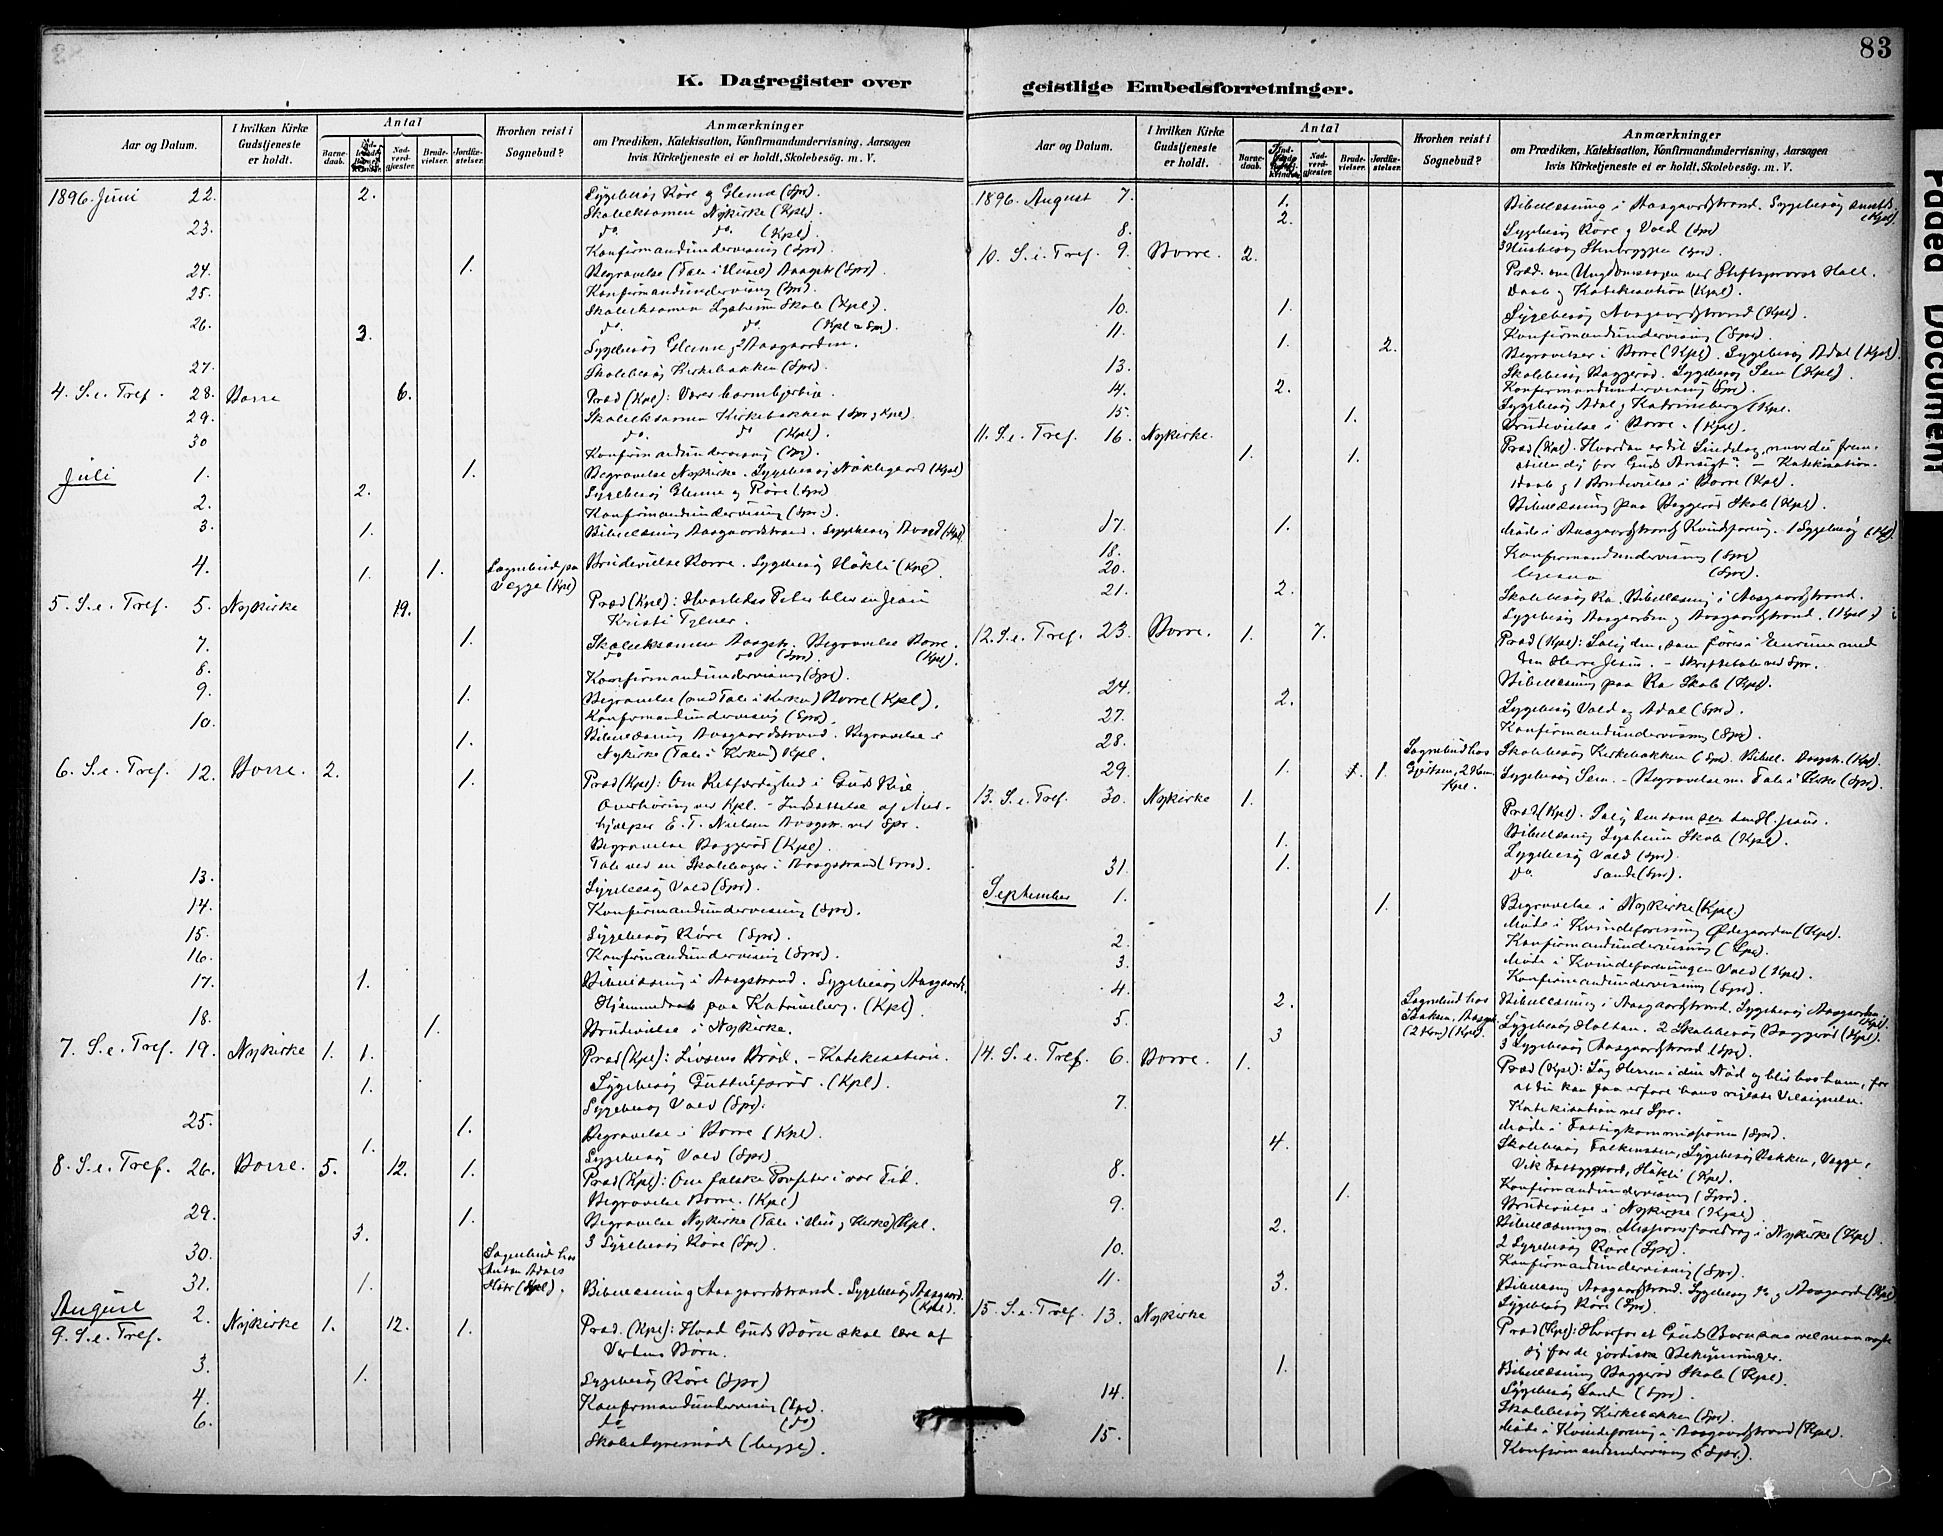 83
K. Dagregister over geistlige Embedsforretninger.
Aar og Datum.
I hvilken Kirke Gudstjeneste er holdt.
Antal
Barnedaab.
Nadverdgjester.
Brudevielser.
Jordfæstelser.
Hvorhen reist i Sognebud?
Anmærkninger
om Prædiken, Katekisation, Konfirmandundervisning, Aarsagen
hvis Kirketjeneste ei er holdt, Skolebesøg. m. V.
1896. Juni 22. 2. Sygebesøg Røre og Glenne (Spr).
Skoleeksamen Nykirke (Kpl).
23. do. do. (Kpl).
Konfirmandundervisning (Spr).
24. 1. Begravelse (Tale i Huset) Aasgst. (Spr).
25. Konfirmandundervisning (Spr).
Skoleeksamen Lysheim Skole (Kpl.)
26. do. do. (Kpl & Spr).
3. Sygebesøg Glenne, 2 Aasgaarden.
27. Skolebesøg Kirkebakken (Spr).
4. S. e. Tref. 28. Borre 6. Præd (Kpl): Værer barmhjertige
29. Skoleeksamen Kirkebakken (Spr og Kpl).
30 do. do (Kpl).
Konfirmandundervisning (Spr).
Juli 1. 1. Begravelse Nykirke. Sygebesøg Nøklegaard (Kpl)
2. 2. Sygebesøg Glenne og Røre (Spr)
Konfirmandundervisning (Spr.)
3. 1. Bibellæsning Aasgaardstrand. Sygebesøg (Kpl)
4. 1. 1. Sognebud paa Vegge (Kpl) Brudevielse Borre. Sygebesøg Håkli (Kpl)
5. S. e. Tref. 5. Nykirke 19. Præd (Kpl): Hvorledes Peter blev en Jesu
Kristi Tjener.
7. 1. Skoleeksamen Aasgstr. Begravelse Borre.
do do (Spr). (Kpl).
8. Konfirmandundervisning (Spr).
9. 1. Begravelse (med Tale i Kirken) Borre (Kpl).
Konfirmandundervisning (Spr).
10. 1. Bibellæsning Aasgaardstrand. Begravelse i
Nykirke (Tale i Kirken) Kpl.
6. S. e. Tref. 12. Borre. 2. 1. Præd (Kpl): Om Retfærdighed i Guds Rige
Overhøring ved Kpl. - Indsættelse af Med-
hjælper E. T. Nielsen Aasgstr. ved Spr.
Begravelse Baggerød (Kpl).
Tale ved en Skolebazar i Aasgstrand (Spr).
13. Sygebesøg Vold (Spr).
14. Konfirmandundervisning (Spr).
15. Sygebesøg Røre (Spr).
16. Konfirmandundervisning (Spr).
17. 1. Bibellæsning i Aasgstrand. Sygebesøg Aasgaard.
Hjemmedaab paa Katrineberg. (Kpl)
18. 1. Brudevielse i Nykirke.
7. S. e. Tref. 19. Nykirke 1. 1. Præd (Kpl): Livsens Brød. - Katekisation.
1. Sygebesøg Guttulfsrød. (Kpl).
Sygebesøg Vold (Spr).
25. 1. Begravelse i Borre (Kpl).
1. Sygebesøg Vold (Spr).
8. S. e. Tref. 26. Borre. 5. 12. 1. Præd (Kpl): Om falske Profeter i vor Tid.
Begravelse Borre. (Kpl)
29. 1. Begravelse Nykirke (Tale i Hus og Kirke) (Kpl.
3. 3 Sygebesøg Røre (Spr).
30. Sognebud hos Anton Adals
31. 1. (Kpl). Bibellæsning Aasgaardstrand. Sygebesøg Aasgaard.
(Kpl).
August 2. Nykirke 1. 12. 1. Præd. (Kpl): Hvad Guds Børn skal lære af
9. S. e. Tref. Verdens Børn.
3. 1. Sygebesøg Røre (Spr)
4. Konfirmandundervisning (Spr).
6. do (do)
Skolestyremøde (begge).
Aar og Datum.
I hvilken Kirke Gudstjeneste er holdt.
Antal
Barnedaab.
Nadverdgjester.
Brudevielser.
Jordfæstelser.
Hvorhen reist i Sognebud?
Anmærkninger
om Prædiken, Katekisation, Konfirmandundervisning, Aarsagen
hvis Kirketjeneste ei er holdt, Skolebesøg. m. V.
1896. August 7. 1. Bibellæsning i Aasgaardstrand. Sygebesøg (Kpl).
8. 2. Sygebesøg Røre og Vold (Spr)
Husbesøg Stenbryggen (Spr).
10. S. e. Tref. 9. Borre. 2. Præd. om Ungdomssagen ved Stiftsprovst Hall.
Daab og Katekisation (Kpl).
10. 1. Sygebesøg Aasgaardstrand (Kpl).
11. Konfirmandundervisning (Spr).
1. 2. Begravelser i Borre (Kpl). Sygebesøg Adal (Kpl).
13. Skolebesøg Baggerød. Sygebesøg Sem (Kpl).
14. 2. Konfirmandundervisning (Spr).
Sygebesøg Adal og Katrineberg (Kpl.
15. 1. Brudevielse i Borre. (Kpl).
11. S. e. Tref. 16. Nykirke. Præd (Kpl). Hvordan er dit Sindelag, naar du frem-
1. 1. stiller dig for Guds Ansigt? - Katekisation.
1 Daab og 1 Brudevielse i Borre (Kpl).
Bibellæsning paa Baggerød Skole (Kpl).
17. 1. Møde i Aasgaardstrands Kvindeforening. 1 Sygebesøg (Kpl).
18. Konfirmandundervisning (Spr)
20. ligesaa (Spr).
21. 2. Skolebesøg Ra. Bibellæsning i Aasgaardstrand.
Sygebesøg Aasgaarden og Aasgaardstrand. (Kpl.)
12. S. e. Tref. 23. Borre. 1. 7. Præd (Kpl): Salig den, som føres i Enerum med
den Herre Jesus. - Skriftetale ved Spr.
Bibellæsning paa Ra Skole (Kpl).
24. 2. Sygebesøg Vold og Adal (Spr).
27. Konfirmandundervisning (Spr).
28. Sognebud hos Skolebesøg Kirkebakken (Spr). Bibell. Aasgstr. (Kpl).
29. 1. 1. 1. 2 Kom. Kpl. Sygebesøg Sem. - Begravelse m. Tale i Kirke (Spr).
13. S. e. Tref. 30. Nykirke 1. Præd (Kpl). Salig den som ser den H. Jesus.
1. Bibellæsning Lysheim Skole (Kpl).
Sygebesøg Vold (Spr).
31. 1. do. Sande (Spr).
September 1. 1. Begravelse i Nykirke (Kpl.)
Møde i Kvindeforening Ødegaarden (Kpl).
2. Konfirmandundervisning (Spr)
3. Møde i Kvindeforeningen Vold (Kpl).
Konfirmandundervisning (Spr).
4. 2. Sognebud hos Isaksen, Aasgst. (2 Kom) (Kpl). Bibellæsning i Aasgaardstrand. Sygebesøg Aasgaarden.
(Kpl).
5. 3 Sygebesøg Holtan. 2 Skolebesøg Baggerød (Kpl).
3 Sygebesøg Aasgaardstrand (Spr).
14. S. e. Tref. 6. Borre. 1. Præd (Kpl): Søg Herren i din Nød og bliv hos ham, for
at du kan faa erfare hans rigeste Velsignelse.
Katekisation ved Spr.
7. Møde i Fattigkommissionen (Spr).
4. Skolebesøg Falkensten, Sygebesøg Bakken, Vegge,
Vik Fattiggaard, Håkli (Kpl).
8. Konfirmandundervisning (Spr).
9. 1. Brudevielse i Nykirke (Kpl)
2. Bibellæsning m. Missionsforedrag i Nykirke (Kpl).
10. 2 Sygebesøg Røre (Spr).
Konfirmandundervisning (Spr).
11. 3. Bibellæsning Aasgaardstrand. Sygebesøg do og Aasgaarden (Kpl)
Sygebesøg Røre (Spr).
15. S. e. Tref. 13. Nykirke Præd (Kpl): Hvorfor et Guds Barn saa vel maa vogte
sig for de jordiske Bekymringer.
1. Bibellæsning Baggerød Skole (Kpl).
14. Sygebesøg Sande (Spr).
Skolebesøg Kirkebakken (Spr).
15. Møde i Kvindeforening i Aasgaardstrand (Kpl).
Konfirmandundervisning (Spr.)
Faded Document